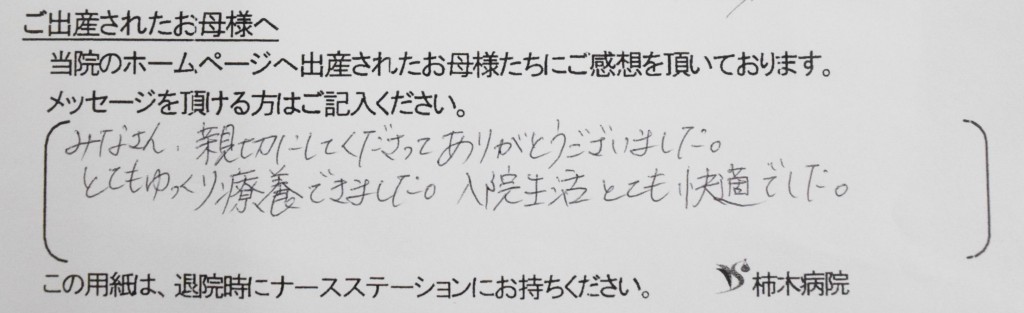 ご出産されたお母様へ
当院のホームページへ出産されたお母様たちにご感想を頂いております。
メッセージを頂ける方はご記入ください。
みなさん、親切にしてくださってありがとうございました。
とてもゆっくり療養できました。入院生活とても快適でした。
この用紙は、退院時にナースステーションにお持ちください。 柿木病院